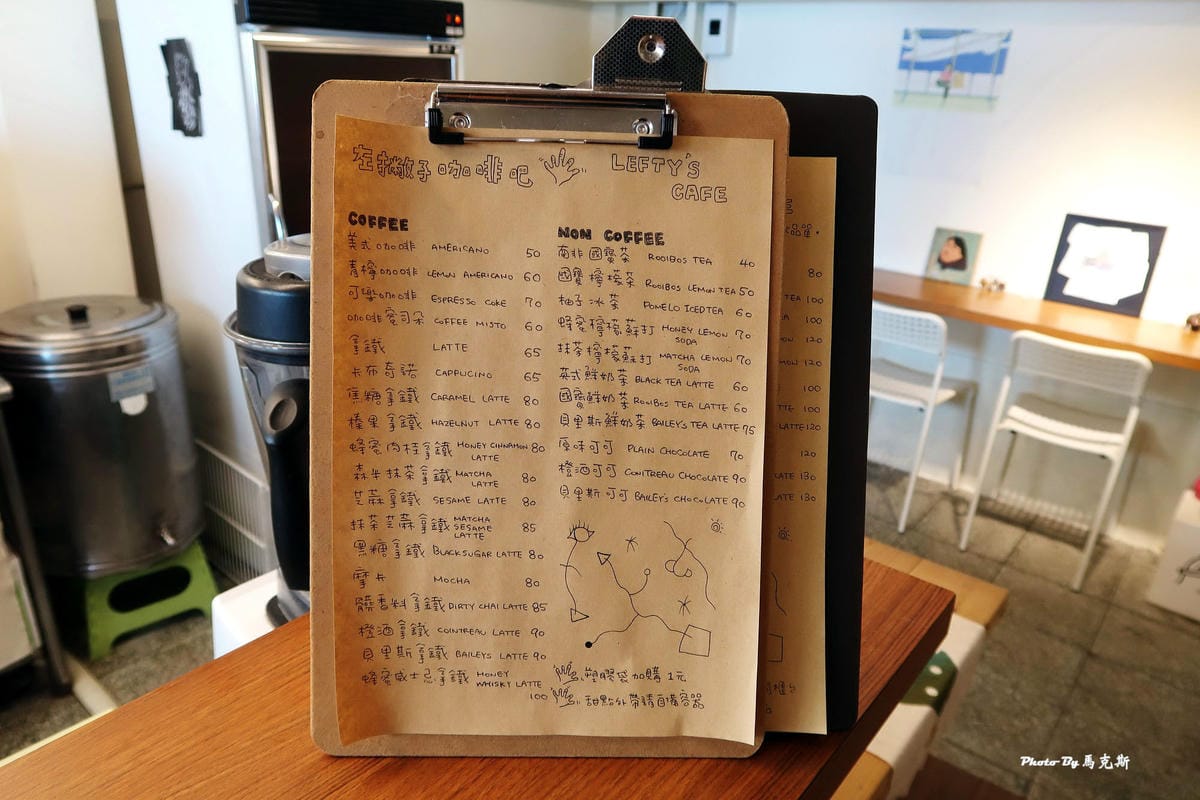 左撇子咖啡吧 LEFTY'S CAFE
COFFEE
美式咖啡 AMERICANO 50
青檸咖啡 LEMON AMERICANO 60
可樂咖啡 ESPRESSO COKE 70
咖啡蜜司朵 COFFEE MISTO 60
拿鐵 LATTE 65
卡布奇諾 CAPPUCINO 65
焦糖拿鐵 CARAMEL LATTE 80
榛果拿鐵 HAZELNUT LATTE 80
蜂蜜肉桂拿鐵 HONEY CINNAMON LATTE 80
森半抹茶拿鐵 MATCHA LATTE 80
芝麻拿鐵 SESAME LATTE 80
抹茶芝麻拿鐵 MATCHA SESAME LATTE 85
黑糖拿鐵 BLACK SUGAR LATTE 80
摩卡 MOCHA 80
髒香料拿鐵 DIRTY CHAI LATTE 85
橙酒拿鐵 COINTREAU LATTE 90
貝里斯拿鐵 BAILEYS LATTE 90
蜂蜜威士忌拿鐵 HONEY WHISKY LATTE 100
NON COFFEE
南非國寶茶 ROOIBOS TEA 40
國寶檸檬茶 ROOIBOS LEMON TEA 50
柚子冰茶 POMELO ICED TEA 60
蜂蜜檸檬蘇打 HONEY LEMON SODA 70
抹茶檸檬蘇打 MATCHA LEMON SODA 70
英式鮮奶茶 BLACK TEA LATTE 60
國寶鮮奶茶 ROOIBOS TEA LATTE 60
貝里斯鮮奶茶 BAILEY'S TEA LATTE 75
原味可可 PLAIN CHOCOLATE 70
橙酒可可 CONITREAU CHOCOLATE 90
貝里斯可可 BAILEY'S CHOCOLATE 90
塑膠袋加購 1元
甜點外帶請自備容器
80
TEA 100
100
120
MON 120
100
TTE 100
LATTE 120
120
LATE 130
ATE 130
Photo By 馬克斯